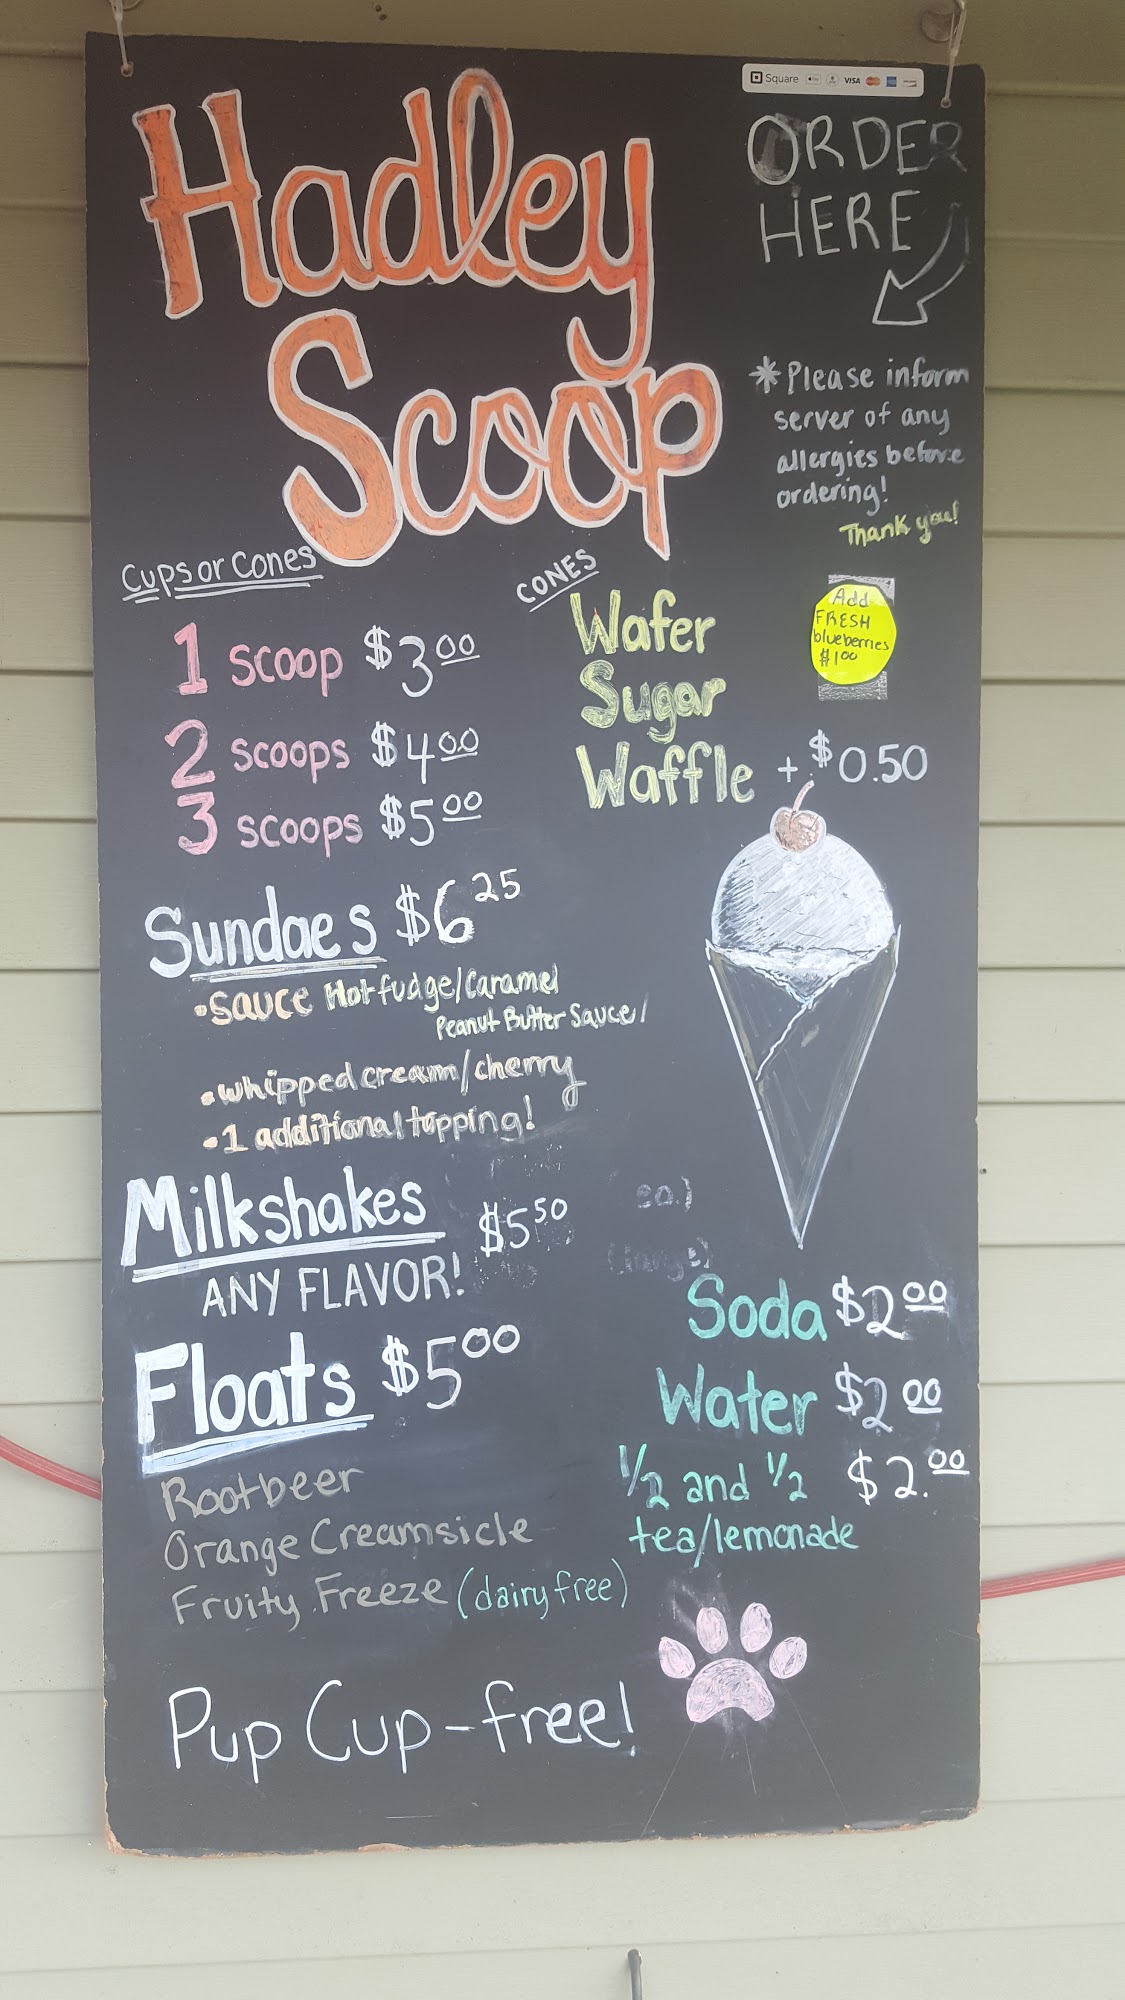 Square VISA
Hadley
Scoop
ORDER
HERE
*Please inform
server of any
allergies before
ordering!
Thank you!
Cups or Cones
1 scoop $3.00
2 scoops $4.00
3 scoops $5.00
CONES
Wafer
Sugar
Waffle + $0.50
Add
FRESH
blueberries
$1.00
Sundaes $6.25
•sauce Hot fudge/Caramel
Peanut Butter Sauce/
•whipped cream/cherry
•1 additional topping!
Milkshakes $5.50
ANY FLAVOR!
Floats $5.00
Rootbeer
Orange Creamsicle
Fruity Freeze (dairy free)
ea.)
Soda $2.00
Water $2.00
1/2 and 1/2 $2.00
tea/lemonade
Pup Cup-free!